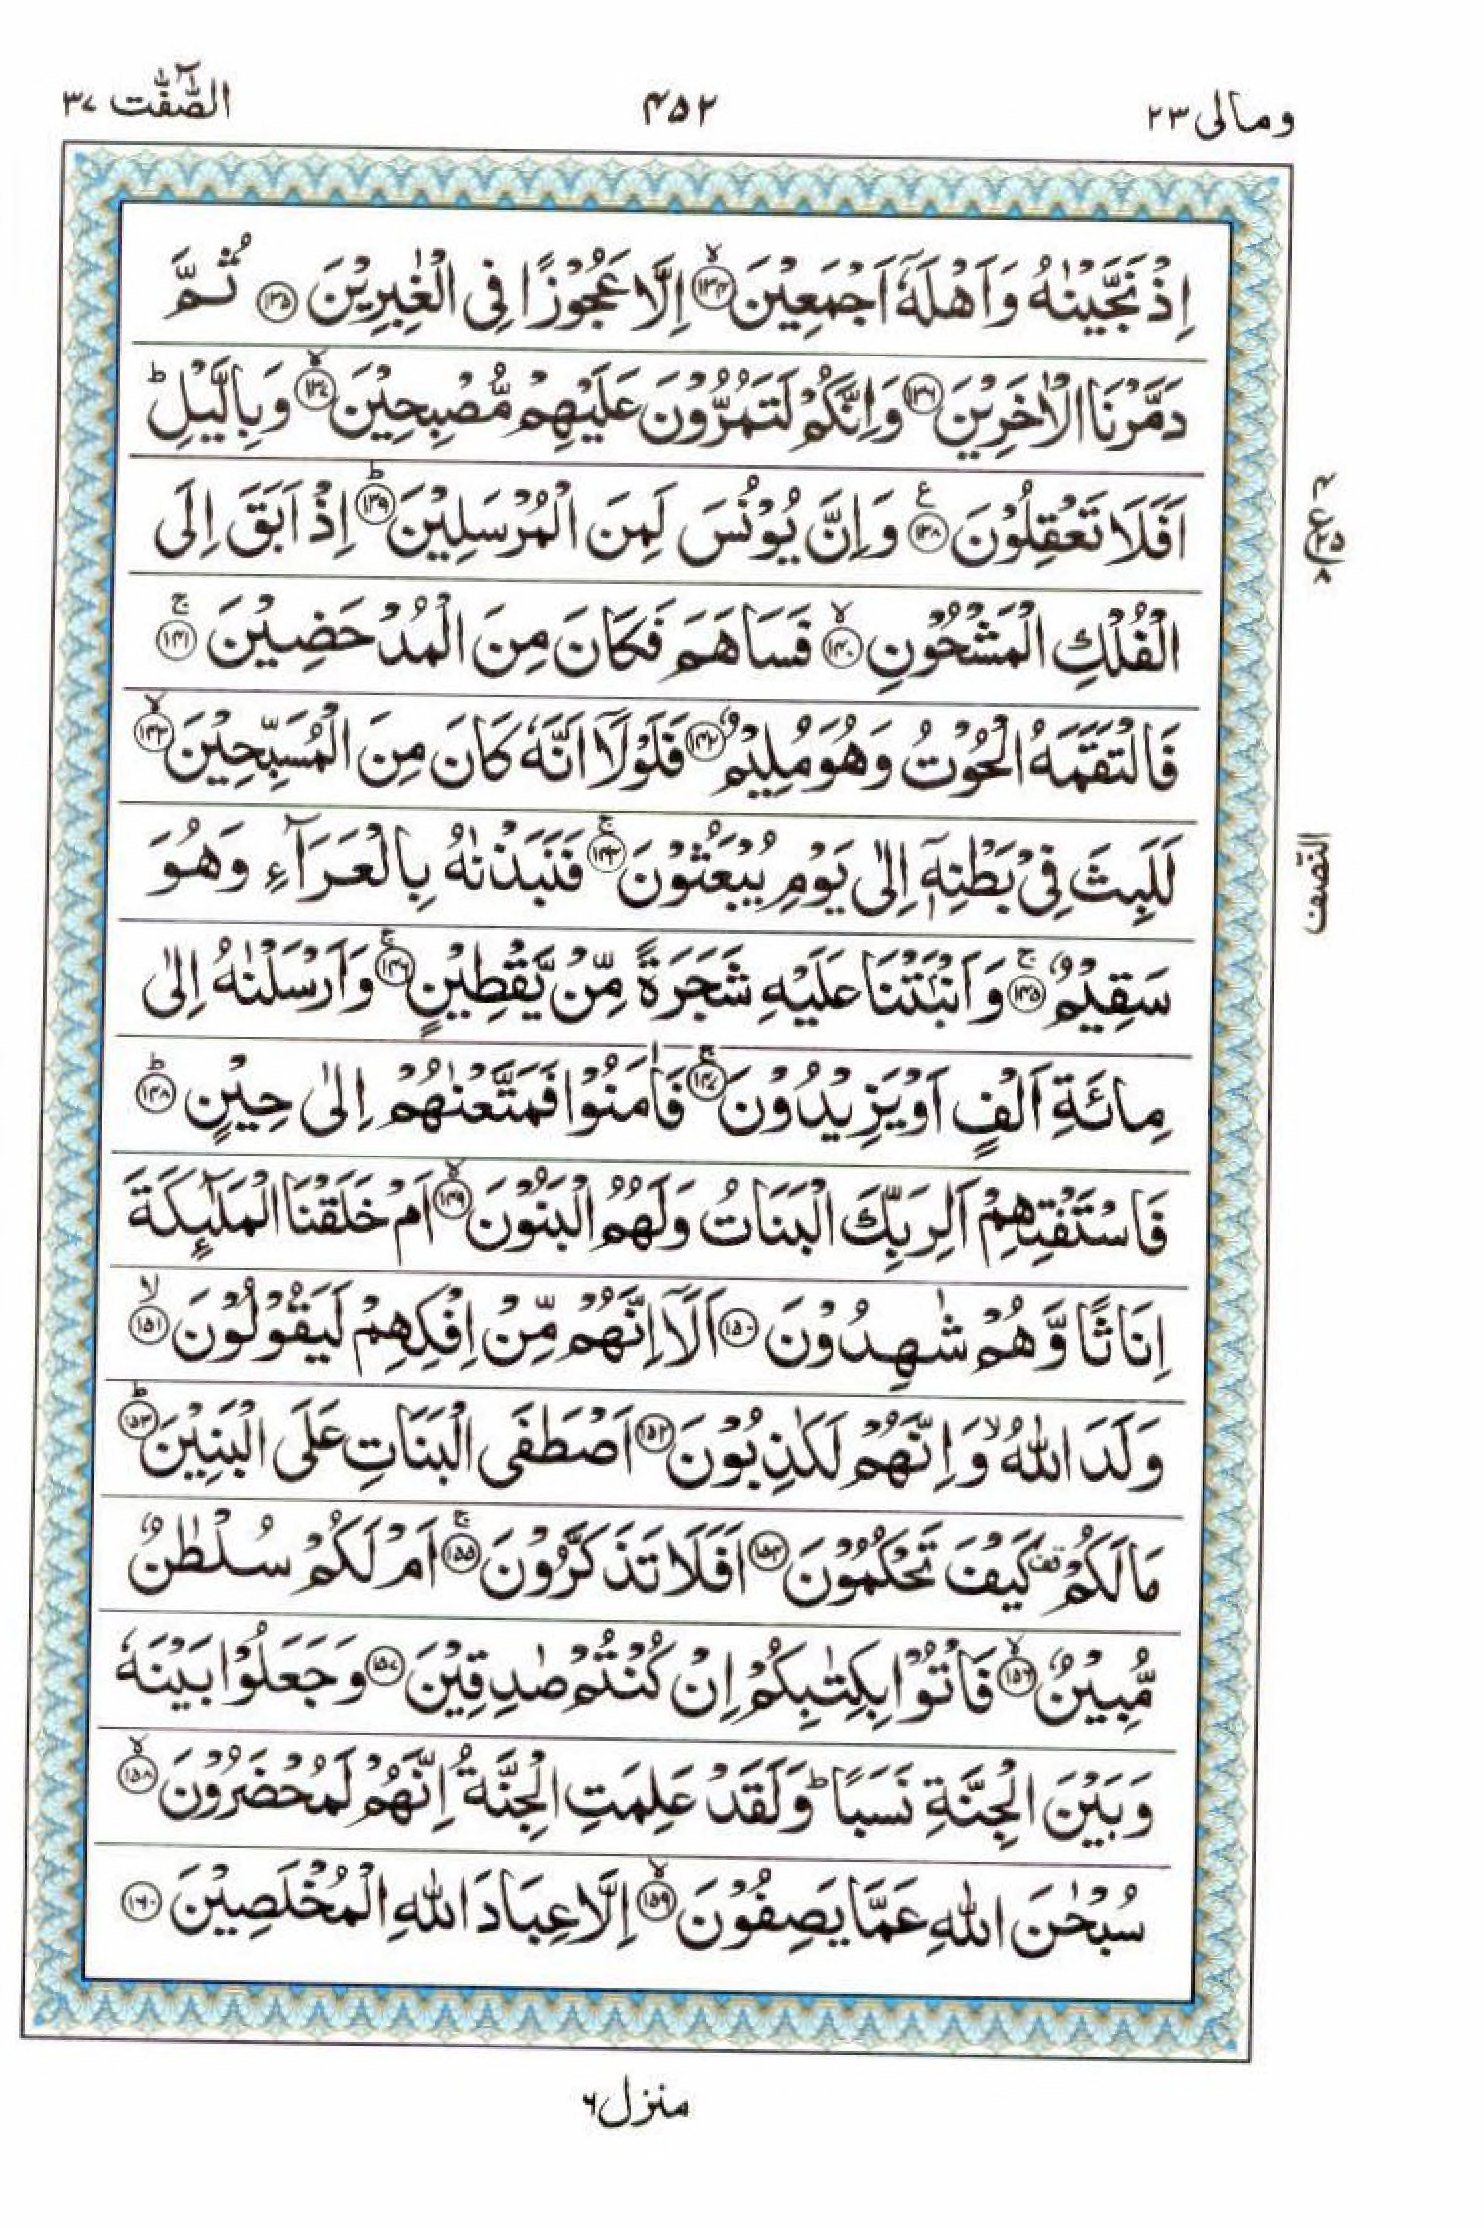 الصّٰٓفّٰت ٣٧
٤٥٢
ومالی ٢٣
اِذْ نَجَّيْنٰهُ وَاَهْلَهٗٓ اَجْمَعِيْنَ ۙ﴿١٣٤﴾ اِلَّا عَجُوْزًا فِى الْغٰبِرِيْنَ ﴿١٣٥﴾ ثُمَّ
دَمَّرْنَا الْاٰخَرِيْنَ ﴿١٣٦﴾ وَاِنَّكُمْ لَتَمُرُّوْنَ عَلَيْهِمْ مُّصْبِحِيْنَ ۙ﴿١٣٧﴾ وَبِالَّيْلِ ؕ
اَفَلَا تَعْقِلُوْنَ ۧ﴿١٣٨﴾ وَاِنَّ يُوْنُسَ لَمِنَ الْمُرْسَلِيْنَ ؕ﴿١٣٩﴾ اِذْ اَبَقَ اِلَى
ع
٢٥
٨
الْفُلْكِ الْمَشْحُوْنِ ۙ﴿١٤٠﴾ فَسَاهَمَ فَكَانَ مِنَ الْمُدْحَضِيْنَ ۚ﴿١٤١﴾
فَالْتَقَمَهُ الْحُوْتُ وَهُوَ مُلِيْمٌ ﴿١٤٢﴾ فَلَوْلَآ اَنَّهٗ كَانَ مِنَ الْمُسَبِّحِيْنَ ۙ﴿١٤٣﴾
لَلَبِثَ فِىْ بَطْنِهٖٓ اِلٰى يَوْمِ يُبْعَثُوْنَ ۚ﴿١٤٤﴾ فَنَبَذْنٰهُ بِالْعَرَآءِ وَهُوَ
النصف
سَقِيْمٌ ۚ﴿١٤٥﴾ وَاَنْۢبَتْنَا عَلَيْهِ شَجَرَةً مِّنْ يَّقْطِيْنٍ ۚ﴿١٤٦﴾ وَاَرْسَلْنٰهُ اِلٰى
مِائَةِ اَلْفٍ اَوْ يَزِيْدُوْنَ ۚ﴿١٤٧﴾ فَاٰمَنُوْا فَمَتَّعْنٰهُمْ اِلٰى حِيْنٍ ؕ﴿١٤٨﴾
فَاسْتَفْتِهِمْ اَلِرَبِّكَ الْبَنَاتُ وَلَهُمُ الْبَنُوْنَ ۙ﴿١٤٩﴾ اَمْ خَلَقْنَا الْمَلٰٓئِكَةَ
اِنَاثًا وَّهُمْ شٰهِدُوْنَ ﴿١٥٠﴾ اَلَآ اِنَّهُمْ مِّنْ اِفْكِهِمْ لَيَقُوْلُوْنَ ۙ﴿١٥١﴾
وَلَدَ اللّٰهُ ۙ وَاِنَّهُمْ لَكٰذِبُوْنَ ﴿١٥٢﴾ اَصْطَفَى الْبَنَاتِ عَلَى الْبَنِيْنَ ؕ﴿١٥٣﴾
مَا لَكُمْ قف كَيْفَ تَحْكُمُوْنَ ﴿١٥٤﴾ اَفَلَا تَذَكَّرُوْنَ ۚ﴿١٥٥﴾ اَمْ لَكُمْ سُلْطٰنٌ
مُّبِيْنٌ ۙ﴿١٥٦﴾ فَاْتُوْا بِكِتٰبِكُمْ اِنْ كُنْتُمْ صٰدِقِيْنَ ﴿١٥٧﴾ وَجَعَلُوْا بَيْنَهٗ
وَبَيْنَ الْجِنَّةِ نَسَبًا ؕ وَلَقَدْ عَلِمَتِ الْجِنَّةُ اِنَّهُمْ لَمُحْضَرُوْنَ ۙ﴿١٥٨﴾
سُبْحٰنَ اللّٰهِ عَمَّا يَصِفُوْنَ ۙ﴿١٥٩﴾ اِلَّا عِبَادَ اللّٰهِ الْمُخْلَصِيْنَ ﴿١٦٠﴾
منزل ٦